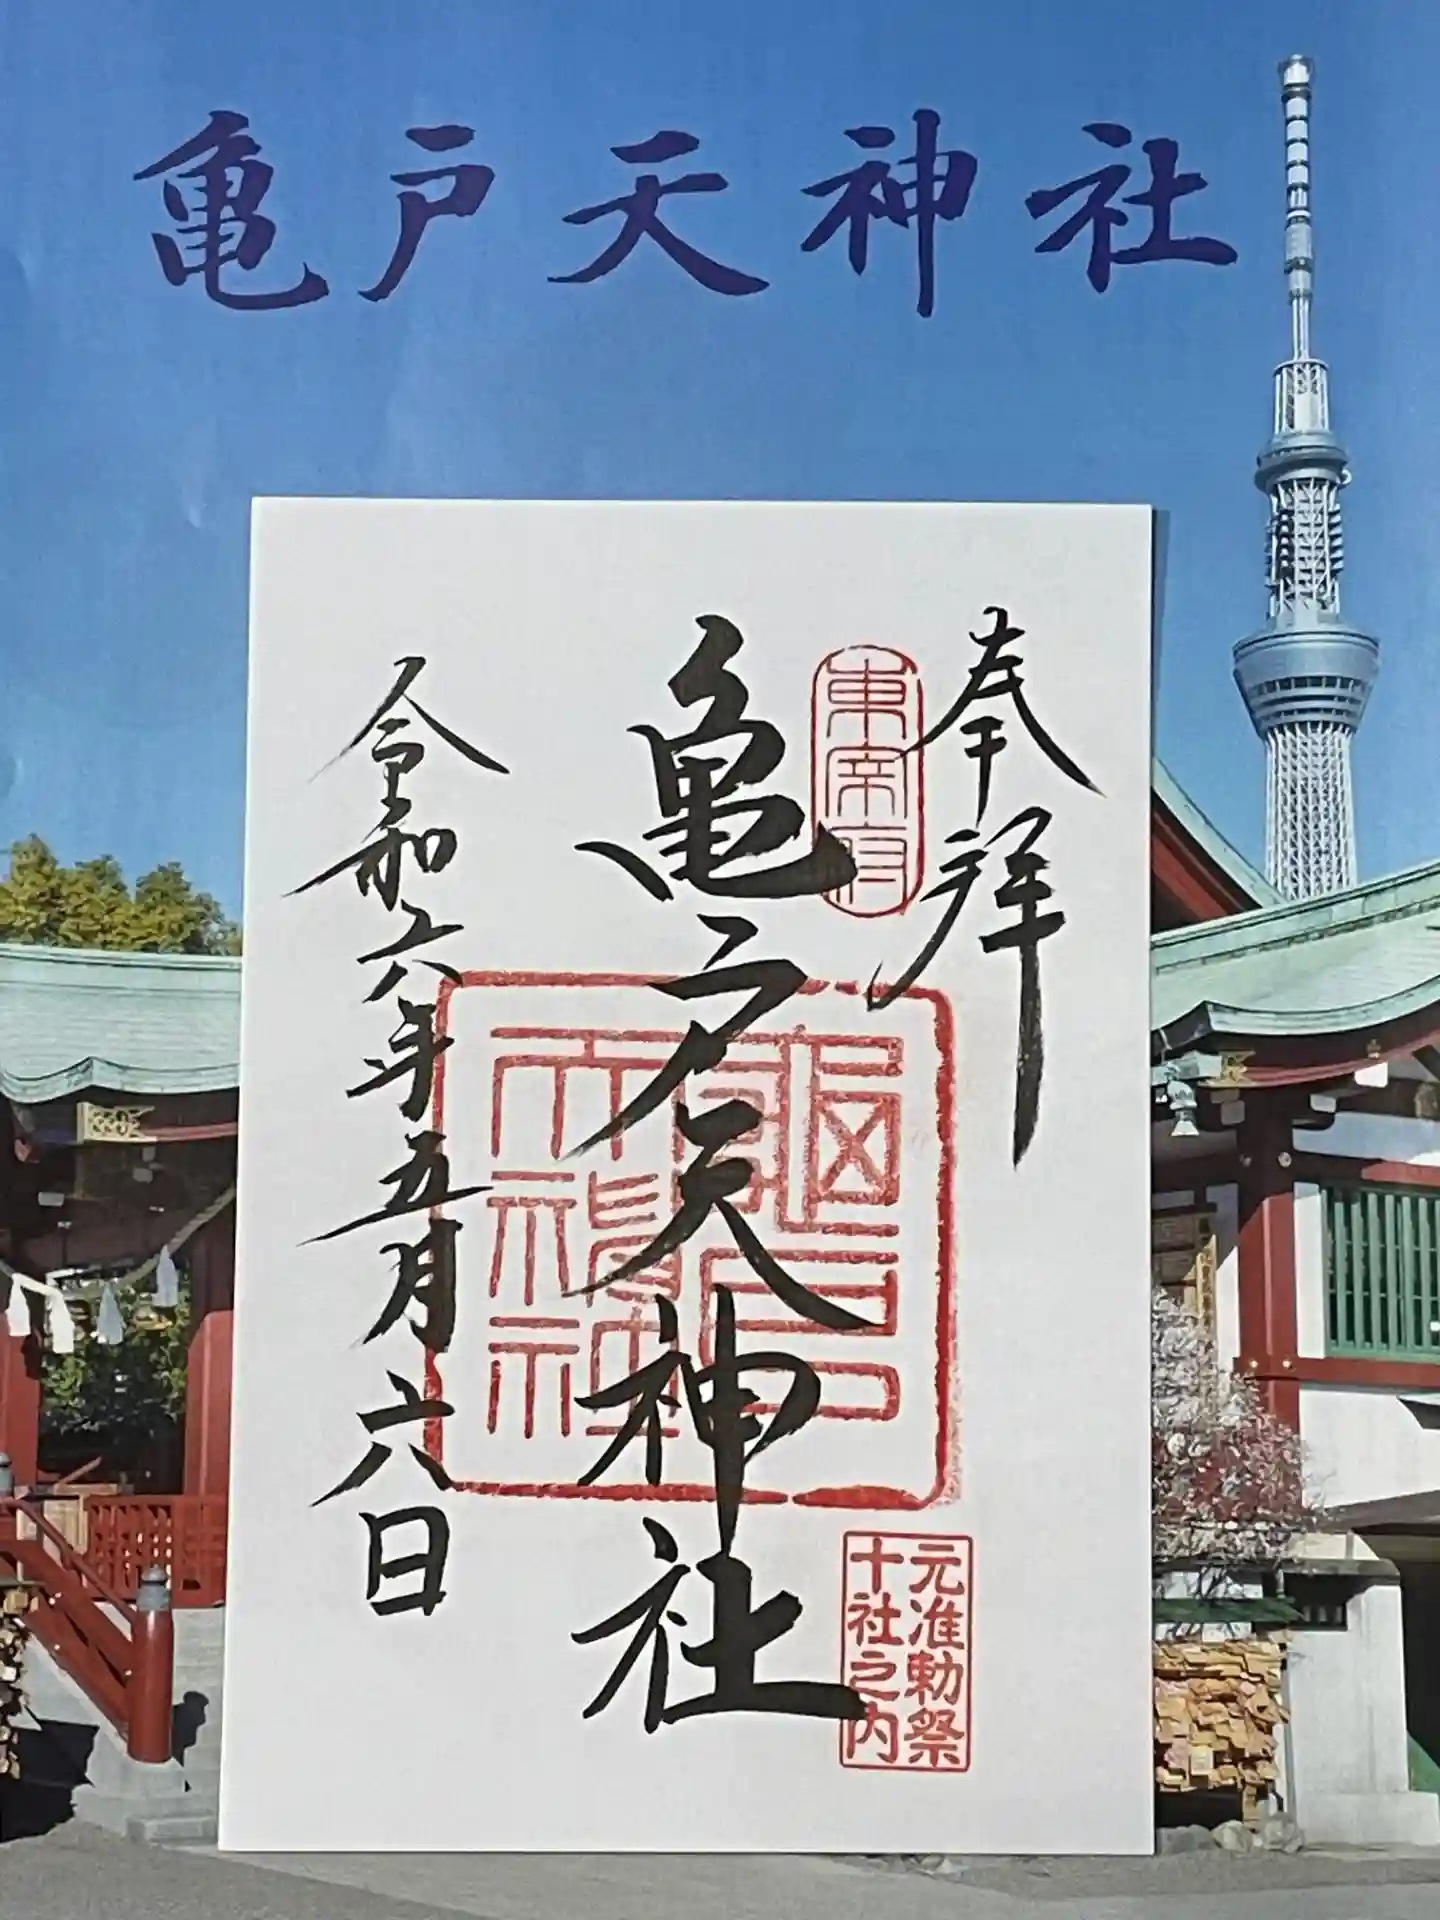 亀戸天神社
奉拝
東宰府
亀戸天神社
亀戸天神社
元准勅祭
十社之内
令和六年五月六日